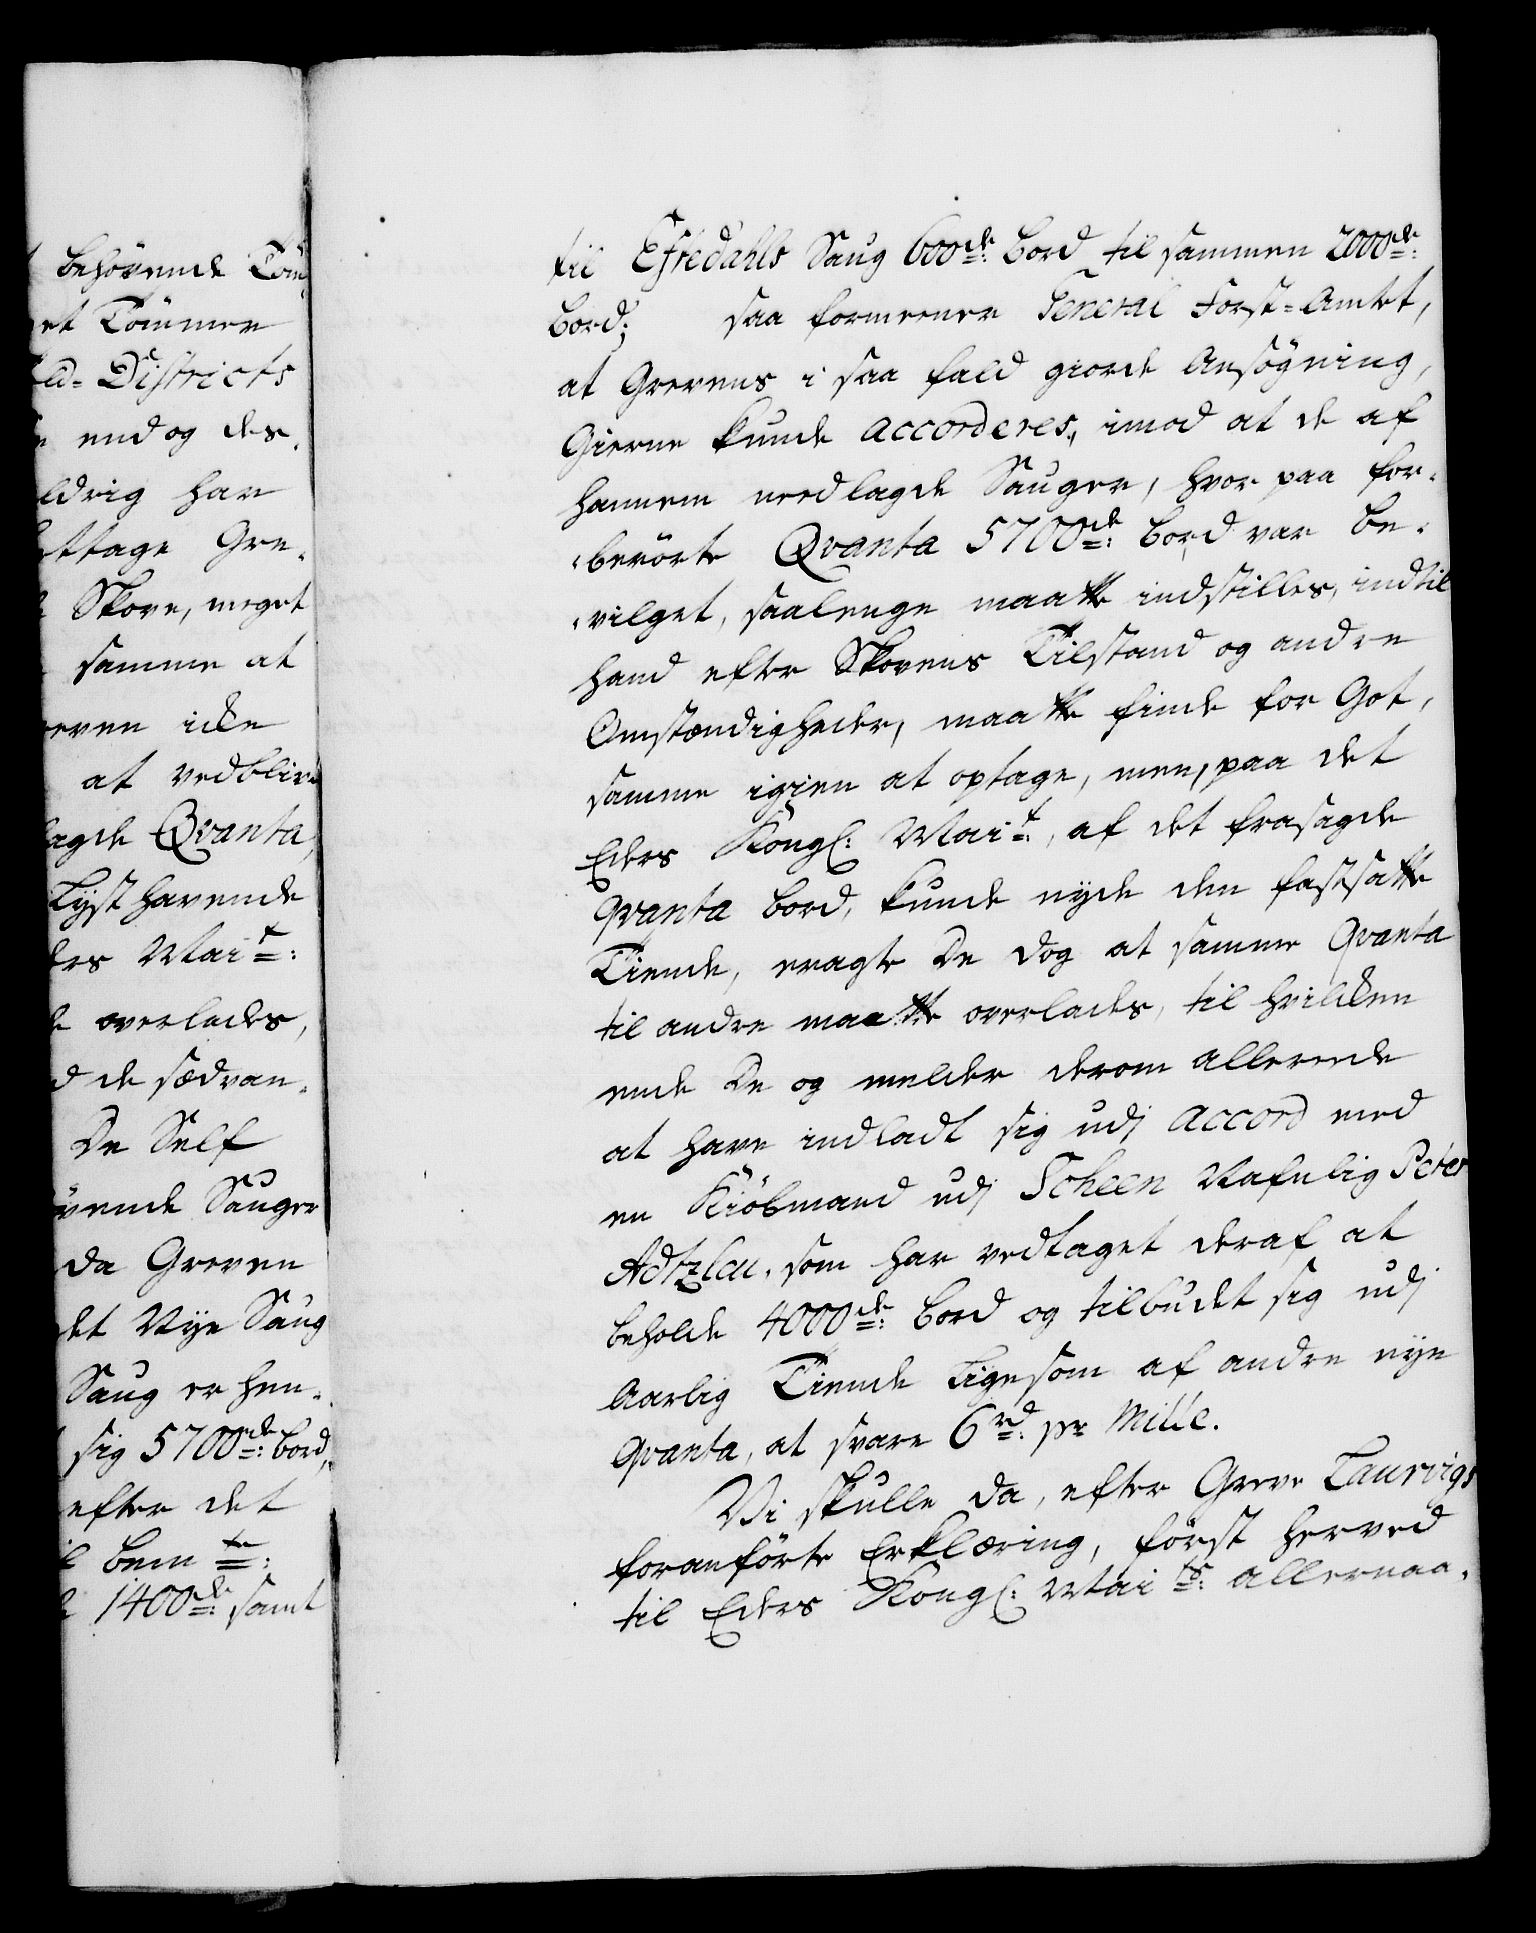 behørende Tøm
et Tømmer
ld- Districts
end og des
ldrig har
ttage Gre-
Skove, meget
samme at
even icke
at vedblive
agde Qvanta,
Lyst havende
ers Mait:
overlades,
d de sædvan-
De Self
vende Sauger
da Greven
det Nye Saug
Saug er hen-
sig 5700de: bord,
efter det
bem te:
1400de: samt
til Efteddahls Saug 600de: bord til sammen 2000de:
bord; saa formeener General Forst-Amtet,
at Grevens i saa fald giorde Ansøgning,
Gierne kunde accorderes, imod at de af
hannem needlagde Sauger, hvor paa for-
berørte Qvanta 5700de: bord var be-
vilget, saalenge maatte indstilles, indtil
hand efter Skovens Tilstand og andre
Omstændigheder, maatte finde for Got,
samme igien at optage, men, paa det
Eders Kongl: Mait:, af det frasagde
Qvanta bord, kunde nyde den fastsatte
Tiende, eragte De dog at samme Qvanta
til andre maatte overlades, til hvilcken
ende De og melder derom allereede
at have indladt sig udj accord med
en Kiøbmand udj Scheen Nafnlig Peter
Adtzlau, som har vedtaget deraf at
beholde 4000de: bord og tilbudet sig udj
Aarlig Tiende Ligesom af andre nye
Qvanta, at svare 6 rd: pr Mille.
Vi skulle da, efter Greve Laurvigs
foranførte Erklæring, først herved
til Eders Kongl: Mai ts: allernaa-